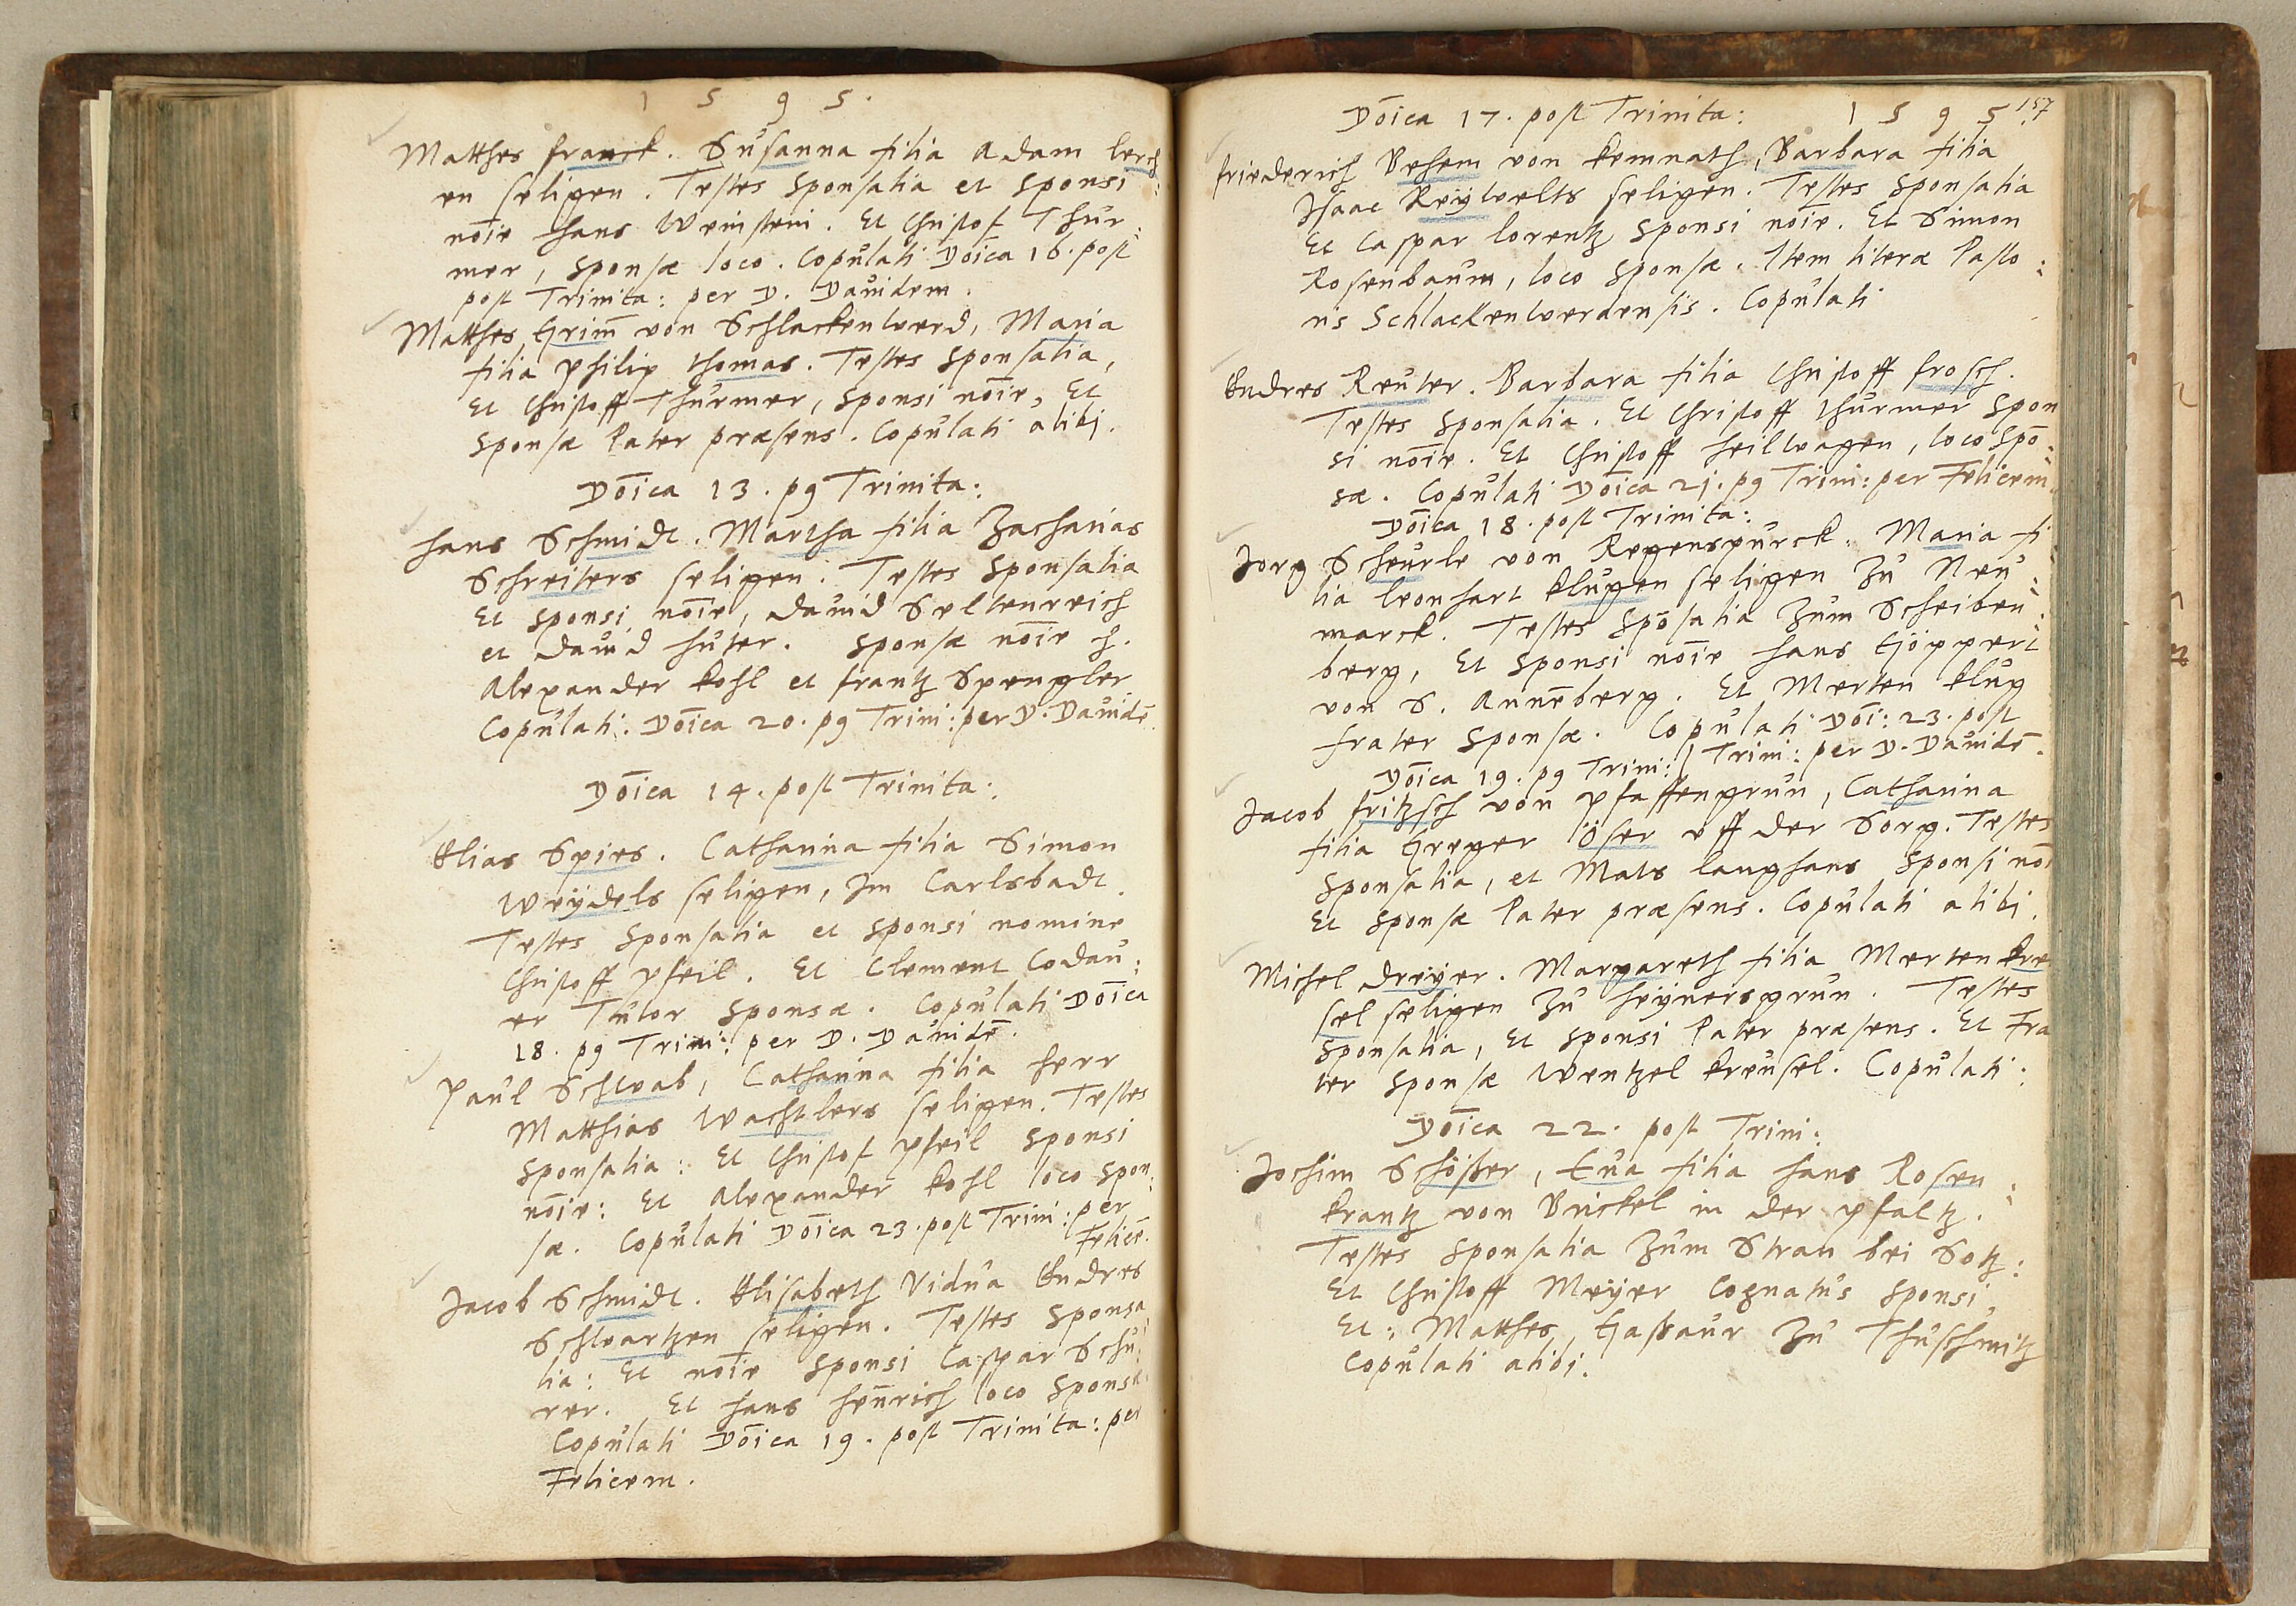 1 5 9 5.
Matthes Franck. Susanna filia Adam Lerch:
en seligen. Testes Sponsalia et Sponsi
nōie Hans Weinstein. Et Christof Thür:
mer, Sponsæ loco. Copulati Dōica 16. post
post Trinita: per D. Dauidem.
Matthes Grim̄ von Schlackenwerd, Maria
filia Philip Thomas. Testes Sponsalia,
Et Christoff Thürmer, Sponsi nōie, Et
Sponsæ Pater præsens. Copulati alibj.
Dōica 13. p9 Trinita:
Hans Schmidt. Martha filia Zacharias
Schreiters seligen. Testes Sponsalia
Et Sponsi nōie, Dauid Seltenreich
et Dauid Huter. Sponsæ nōie H.
Alexander Kohl et Frantz Spengler
Copulati: Dōica 20. p9 Trini: per D. Dauidē.
Dōica 14. post Trinita:
Elias Spies. Catharina filia Simon
Weÿdels seligen, Im Carlsbadt.
Testes Sponsalia et Sponsi nomine
Christoff Pfeil. Et Clement Codau:
er Tutor Sponsæ. Copulati Dōica
18. p9 Trini: per D. Dauidē.
Paul Schwab, Catharina filia Herr
Matthias Wachtlers seligen. Testes
Sponsalia: Et Christof Pfeil Sponsi
nōie: Et Alexander Kohl loco Spon:
sæ. Copulati Dōica 23. post Trini: per
Felicē.
Jacob Schmidt. Elisabeth Vidua Endres
Schwartzen seligen. Testes Sponsa
lia: Et nōie Sponsi Caspar Schu:
rer. Et Hans Hen̄rich loco Sponsæ
Copulati Dōica 19. post Trinita: per
Felicem.
Dōica 17. post Trinita: 1 5 9 5. 157
Friederich Behem von Kemnath, Barbara filia
Isaac Reÿwelts seligen. Testes Sponsalia
Et Caspar Lorentz Sponsi nōie. Et Simon
Rosenbaum, loco Sponsæ. Item literæ Pasto:
ris Schlackenwerdensis. Copulati
Endres Reuter. Barbara filia Christoff Frosch.
Testes Sponsalia. Et Christoff Thürmer Spon
si nōie. Et Christoff Heilwagen, loco Spō:
sæ. Copulati Dōica 21. p9 Trini: per Felicem
Dōica 18. post Trinita:
Jorg Scheurle von Regenspurck. Maria fi
lia Leonhart Klugen seligen Zu Neu:
marck. Testes Spōsalia Zum Scheiben:
berg, Et Sponsi nōie Hans Göppert
von S. Annēberg. Et Merten Klug
frater Sponsæ. Copulati Dōi: 23. post
Dōica 19. p9 Trini: | Trini: per D. Dauidē.
Jacob Fritzsch von Pfaffengrun, Catharina
filia Greger Öser uff der Sorg. Testes
Sponsalia, et Mats Langhans Sponsi nōi
Et Sponsæ Pater præsens. Copulati alibi.
Michel Dreÿer. Margareth filia Merten Kre
sel seligen Zu Heÿnersgrun. Testes
Sponsalia, Et Sponsi Pater præsens. Et Fra
ter Sponsæ Wentzel Kreusel. Copulati:
Dōica 22. post Trini:
Jochim Schößer, Eua filia Hans Rosen:
krantz von Brickel in der Pfaltz.
Testes Sponsalia Zum Stran bei Sotz:
Et Christoff Meÿer Cognatus Sponsi,
Et: Matthes Gaßaur Zu Thuschwitz
Copulati alibi.